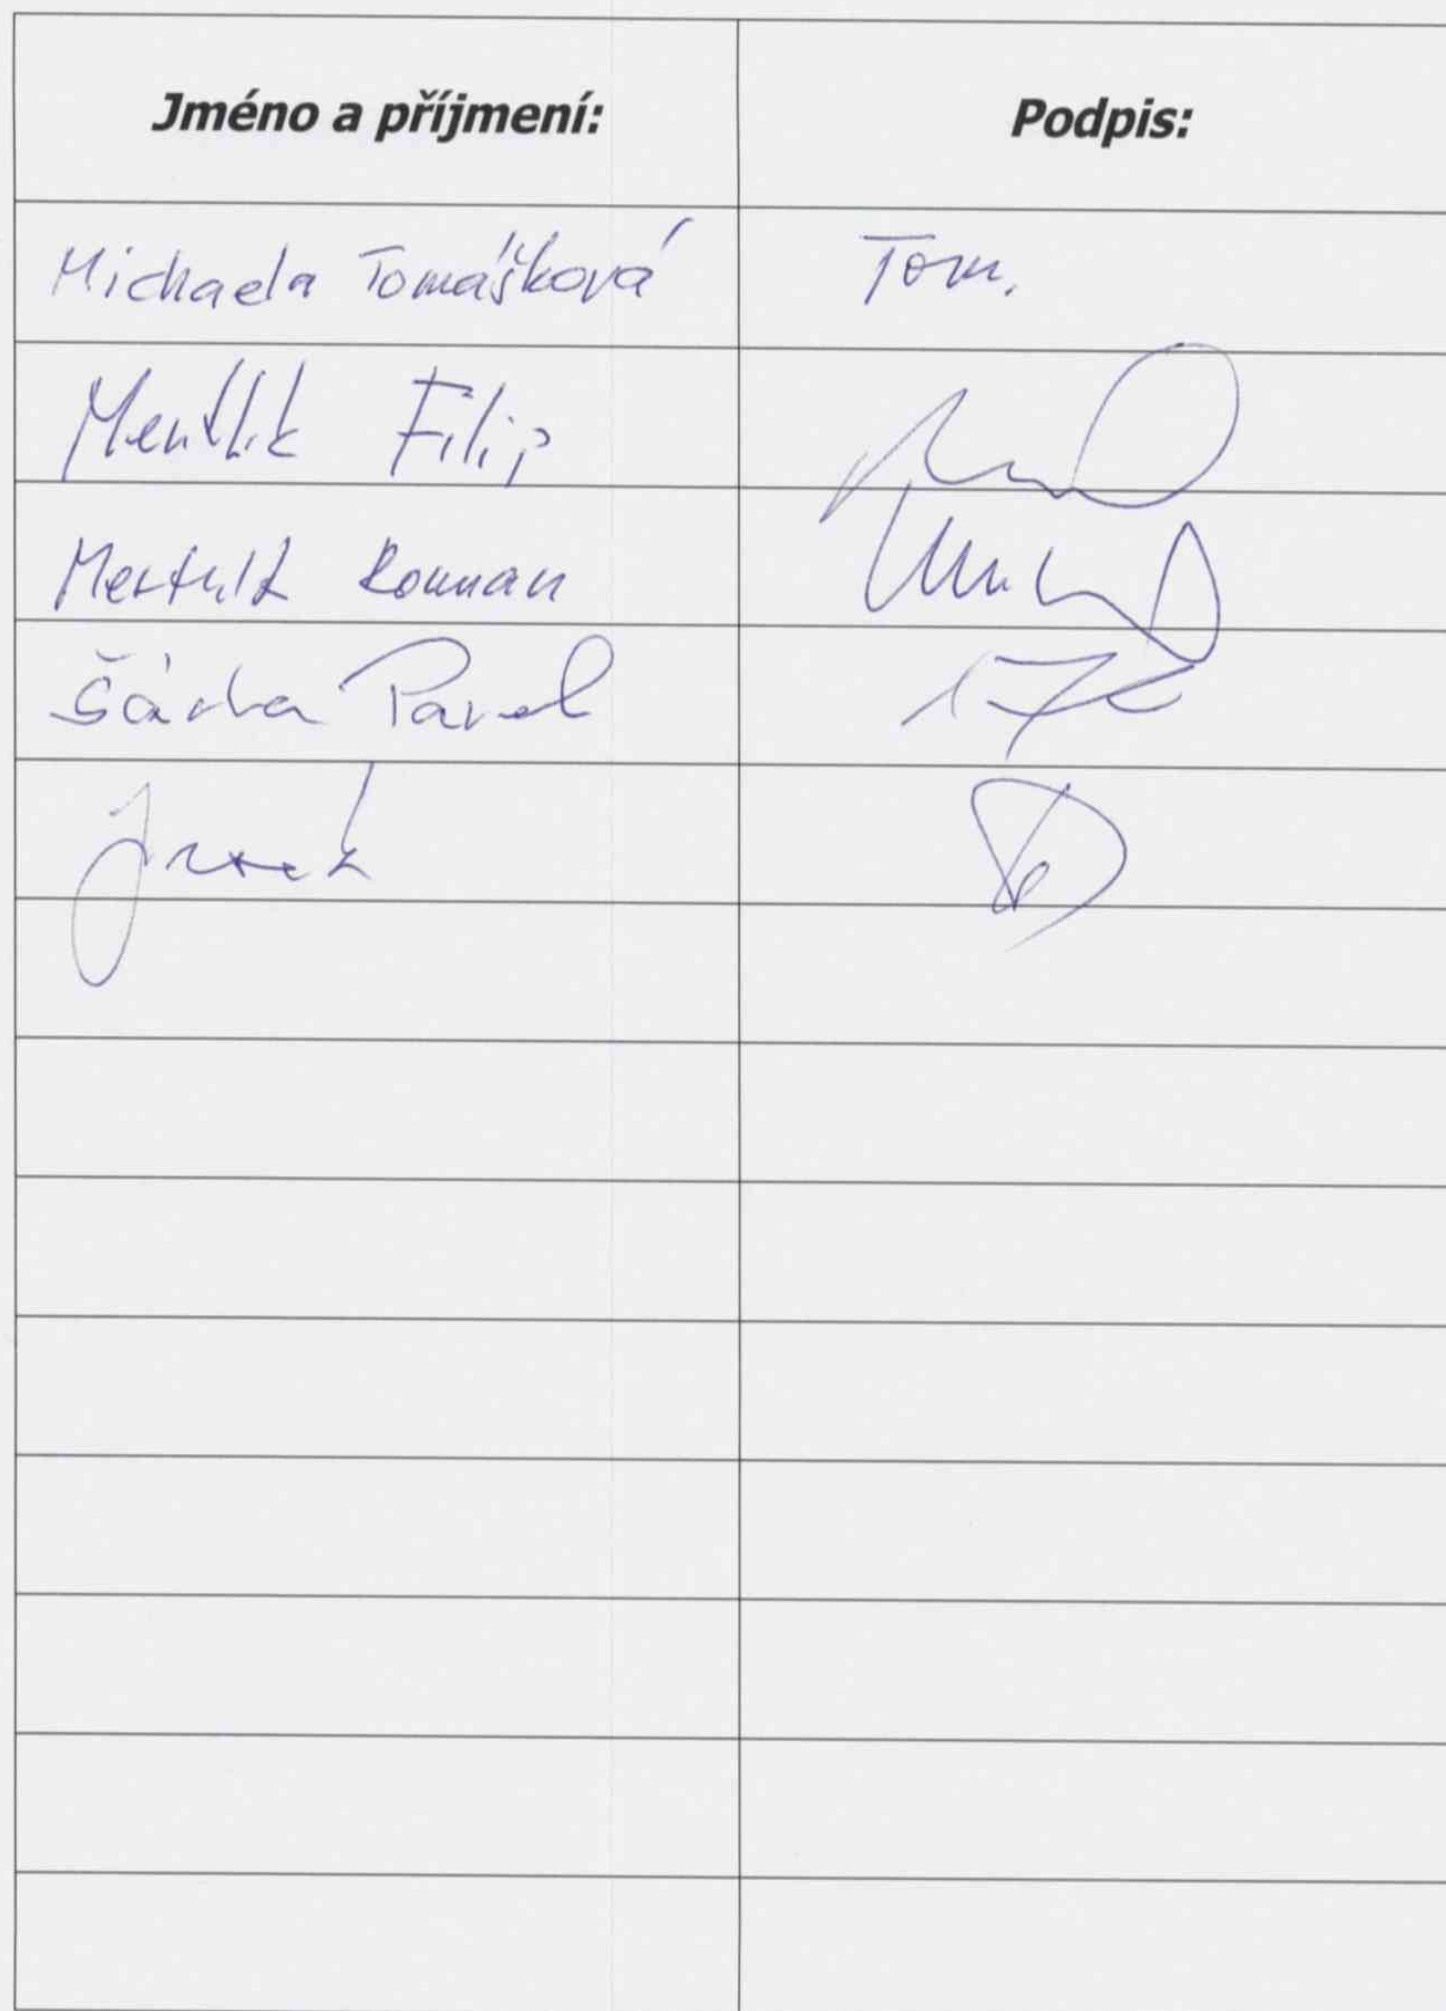 Jméno a příjmení: Podpis:
Michaela Tomášková Tom.
Mentlík Filip
Mentlík Roman
Šácha Pavel